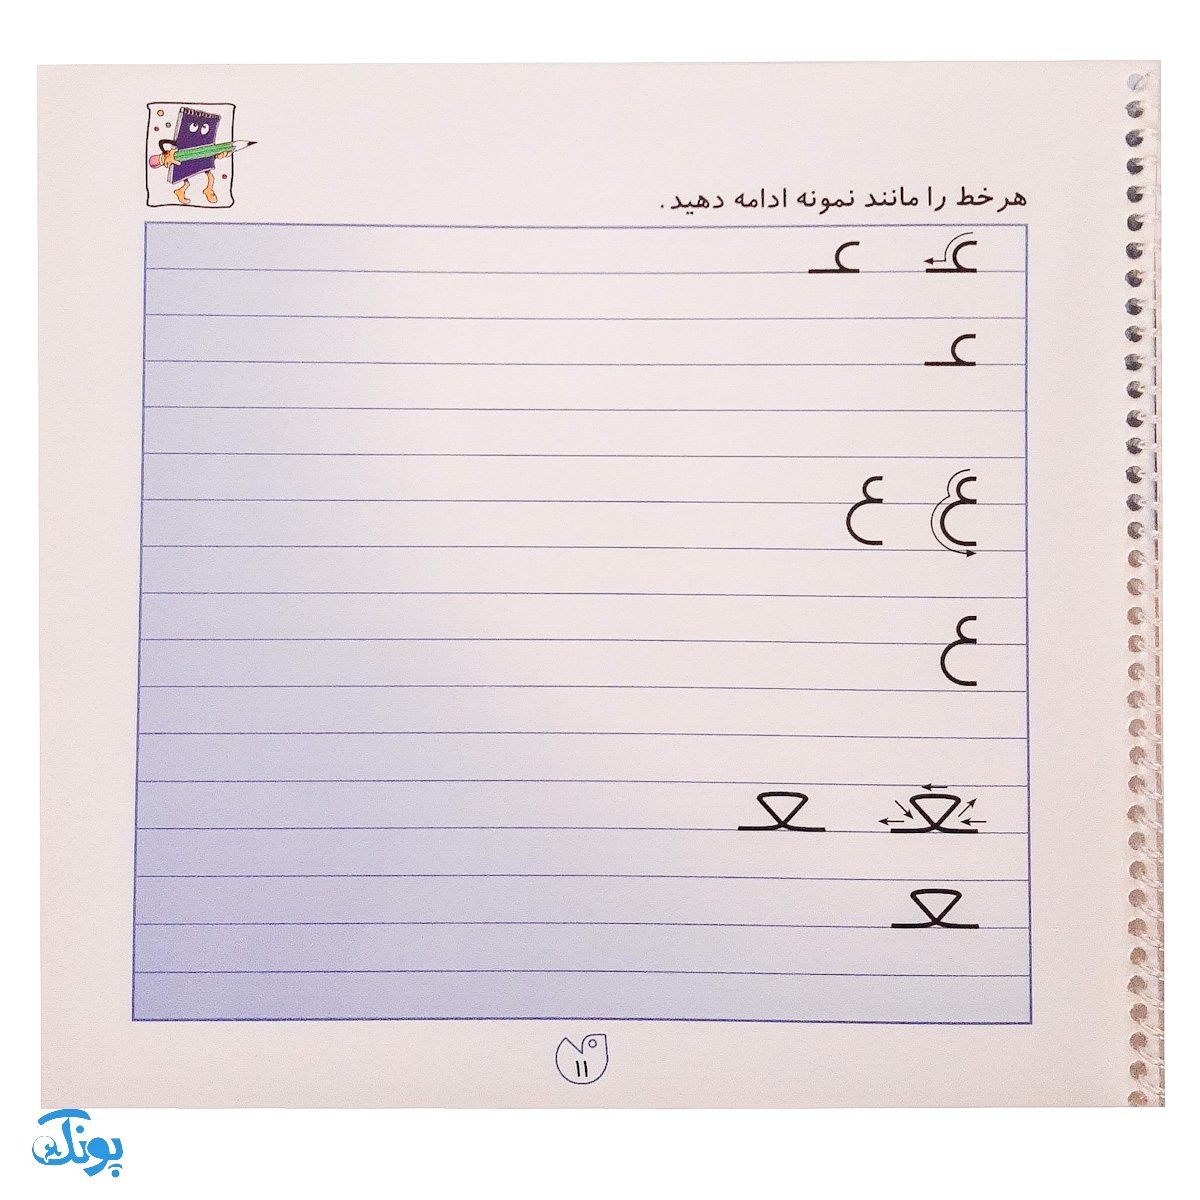 هر خط را مانند نمونه ادامه دهید.
عـ عـ
عـ
ع ع
ع
ـعـ ـعـ
ـعـ
۱۱
پونک